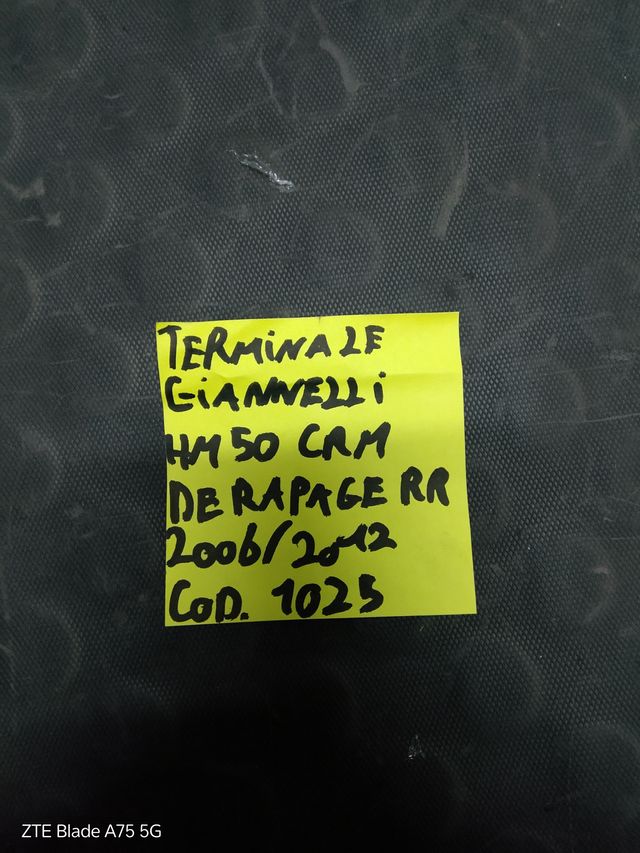 TERMINALE
GIANNELLI
HM 50 CRM
DERAPAGE RR
2006/2012
COD. 1025
ZTE Blade A75 5G